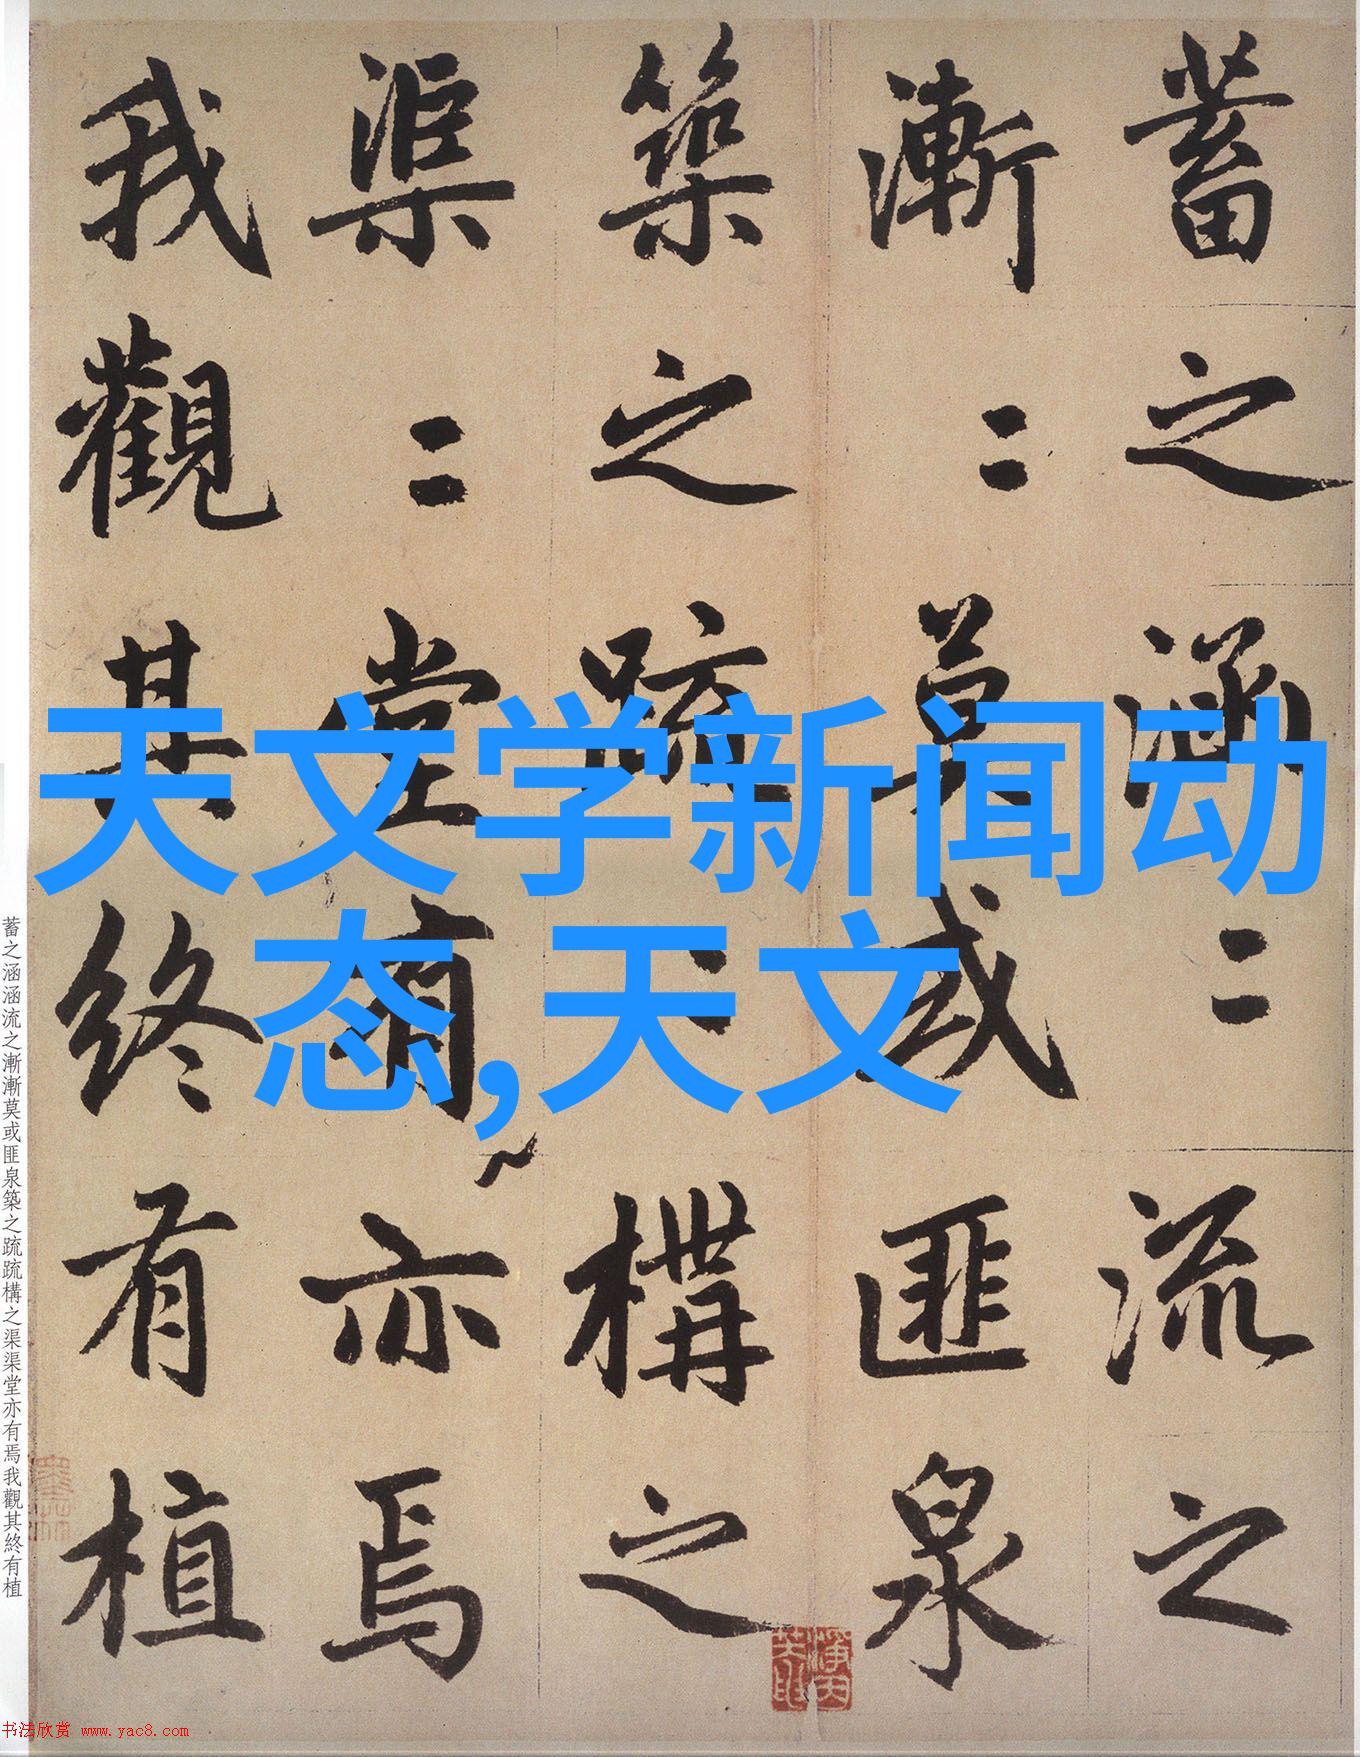 蓄之涵〻流之
漸〻莫或匪泉
築之疏〻構之
渠〻堂爾亦有焉
我觀其終有植
天文学新闻动
态,天文
蓄之涵涵流之漸漸莫或匪泉築之疏疏構之渠渠堂亦有焉我觀其終有植
书法欣赏 www.yac8.com